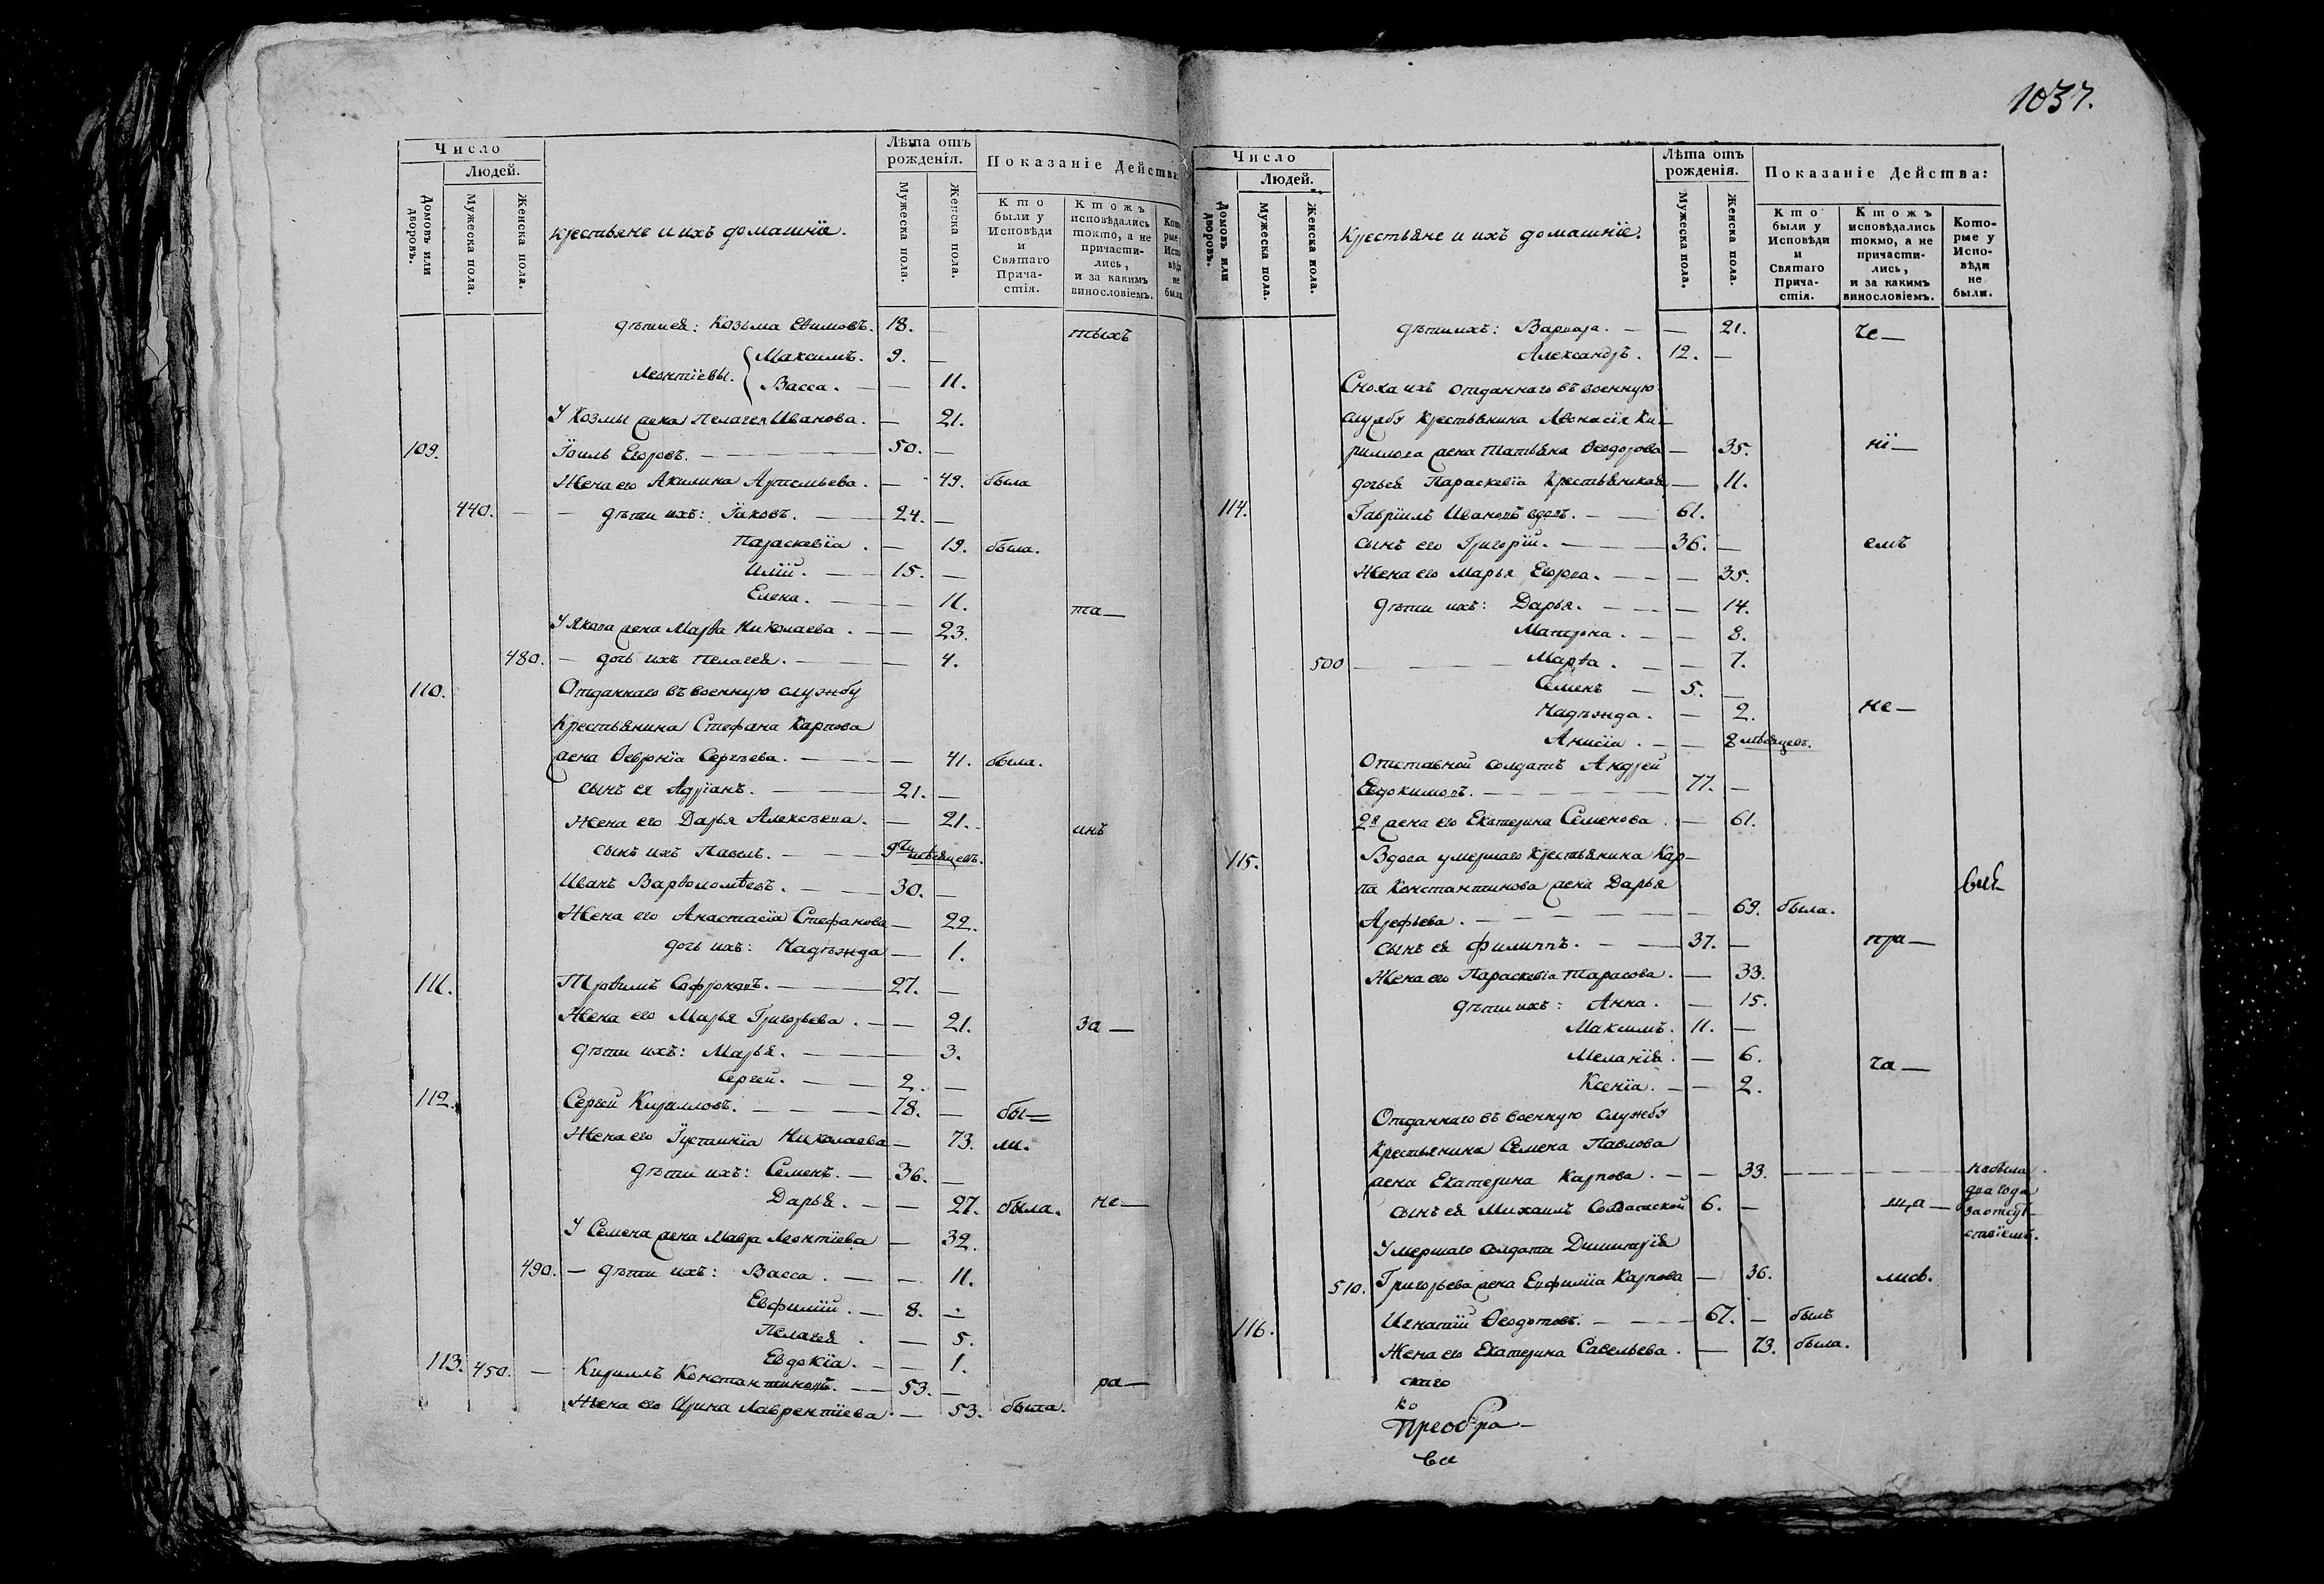 1037.
Число
Людей.
Домовъ или дворовъ.
Мужеска пола.
Женска пола.
Крестьяне и ихъ домашнїе.
Лѣта отъ рожденія.
Мужеска пола.
Женска пола.
Показаніе Действа:
Кто были у Исповѣди и Святаго Причастія.
Ктожъ исповѣдались токмо, а не причастились, и за какимъ винословіемъ.
Которые у Исповѣди не были.
дѣти ея: Козьма Евимовъ. 18. — тыхъ
Леонтїевы. { Максимъ. 9. —
Васса. — — 11.
У Козмы жена Пелагея Иванова. — 21.
109. Їоиль Егоровъ. — 50. —
Жена его Акилина Артемьева. — 49. была
440. — — дѣти ихъ: Їаковъ. — 24. —
Параскевїа. — 19. была.
Илїй. — 15. —
Елена. — — 11. та—
У Якова жена Марѳа Николаева. — — 23.
480. — дочь ихъ Пелагея. — — 4.
110. Отданнаго въ военную службу
Крестьянина Стефана Карпова
жена Ѳеврнїа Сергѣева. — — 41. была.
сынъ ея Адрїанъ. — 21. —
Жена его Дарья Алексѣева. — 21. инъ
сынъ ихъ Павелъ. — 9ти мѣсяцевъ.
Иванъ Варѳоломѣевъ. — 30. —
Жена его Анастасїа Стефанова — 22.
дочь ихъ: Надѣжда — 1.
111. Трофимъ Софроновъ. — 27. —
Жена его Марья Григорьева. — — 21. за—
дѣти ихъ: Марья. — 3.
Сергей. — 2. —
112. Сергей Кирилловъ. — 78. — бы=
Жена его Їустинїа Николаева — 73. ли.
дѣти ихъ: Семенъ. — 36. —
Дарья. — — 27. была. не—
У Семена жена Мавра Леонтїева — 32.
490. — дѣти ихъ: Васса. — — 11.
Евфимїй. — 8. —
Пелагея. — 5.
Евдокїа. — — 1.
113. 450. — Кириллъ Константиновъ. — 53. — ра—
Жена его Ирина Лаврентїева. — 53. была.
Число
Людей.
Домовъ или дворовъ.
Мужеска пола.
Женска пола.
Крестьяне и ихъ домашнїе.
Лѣта отъ рожденія.
Мужеска пола.
Женска пола.
Показаніе Действа:
Кто были у Исповѣди и Святаго Причастія.
Ктожъ исповѣдались токмо, а не причастились, и за какимъ винословіемъ.
Которые у Исповѣди не были.
дѣти ихъ: Варвара. — — 21. че—
Александръ. 12. —
Сноха ихъ отданнаго въ военную
службу Крестьянина Аѳонасїя Ки—
риллова жена Татьяна Ѳеодорова — 35. нї—
дочь ея Параскевїа Крестьянская — 11.
114. Гаврїилъ Ивановъ вдовъ. — 61.
сынъ его Григорїй. — 36. — емъ
Жена его Марья Егорова. — — 35.
дѣти ихъ: Дарья. — — 14.
Матрона. — — 8.
500 — Марѳа. — — 7.
Семенъ — 5. —
Надѣжда. — 2. не—
Анисїа. — — 8 мѣсяцевъ.
Отставной солдатъ Андрей
Евдокимовъ. — 77. —
2я жена его Екатерина Семенова. — 61.
115. Вдова умершаго Крестьянина Кар—
па Константинова жена Дарья
Арефьева. — — 69. была.
сынъ ея Филиппъ. — 37. — при—
Жена его Параскевїа Тарасова. — 33.
дѣти ихъ: Анна. — 15.
Максимъ. 11. —
Меланїя. — 6. ча—
Ксенїа. — — 2.
Отданнаго въ военную службу
Крестьянина Семена Павлова
жена Екатерина Карпова. — — 33. — небыла
два года
сынъ ея Михаилъ Солдатской 6. — ща— за отсут—
ствїемъ.
Умершаго солдата Димитрїя
510. Григорьева жена Евфимїа Карпова — 36. лись.
116. Игнатїй Ѳеодотовъ. — 67. — былъ
Жена его Екатерина Савельева. — 73. была.
скаго
ко
Преобра—